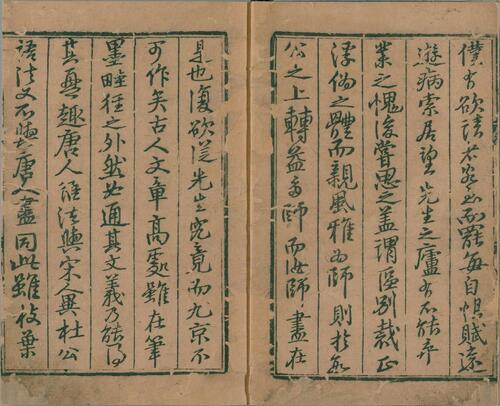 僕欲請不罷每自恨賦遠
遊病索居望先生之廬而不能卒
業之愧後嘗思之蓋謂區別裁正
浮偽之體而親風雅為師則於無
公之上轉益多師而汝師盡在
是也復欲從先生究竟而九京不
可作矣古人文章高處雖在筆
墨畦徑之外然必通其文義乃能得
其趣唐人法與宋人異杜公
語法又不與唐人盡同此雖枝葉